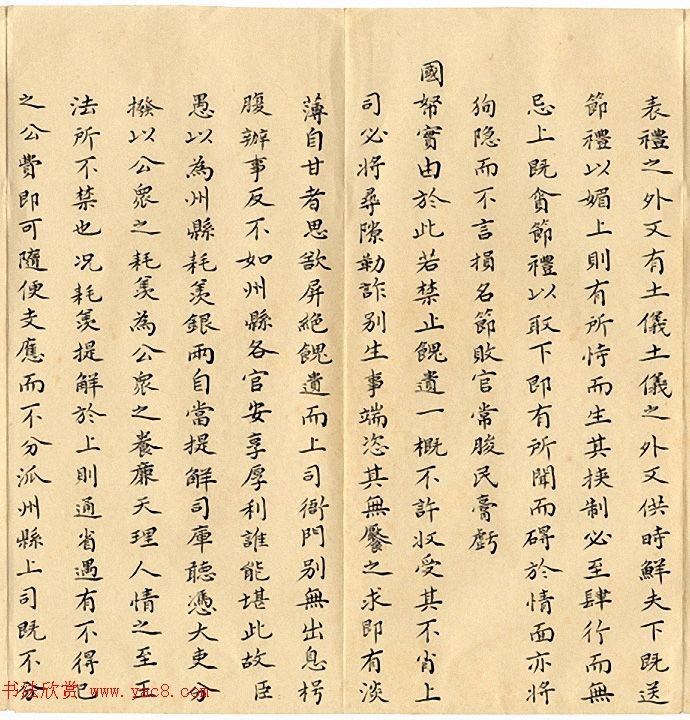 表禮之外又有土儀土儀之外又供時鮮夫下既送
節禮以媚上則有所恃而生其挾制必至肆行而無
忌上既貪節禮以取下即有所聞而碍於情面亦將
狥隐而不言損名節敗官常朘民膏虧
國帑實由於此若禁止餽遺一概不許収受其不肖上
司必将尋隙勒詐别生事端恣其無饜之求即有淡
薄自甘者思欲屏絶餽遺而上司衙門别無出息枵
腹辦事反不如州縣各官安享厚利誰能堪此故臣
愚以為州縣耗羨銀兩自當提解司庫聽憑大吏分
撥以公衆之耗羨為公衆之養廉天理人情之至王
法所不禁也况耗羨提解於上則通省遇有不得已
之公費即可隨便支應而不分派州縣上司既不分
书法欣赏 www.yac8.com